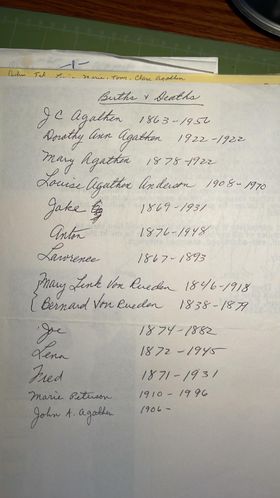 Marie, Tom, Clara Agathen
Births & Deaths
J C Agathen 1863-1956
Dorothy Ann Agathen 1922-1922
Mary Agathen 1878-1922
Louise Agathen Anderson 1908-1970
Jake 1869-1931
Anton 1876-1948
Lawrence 1867-1893
Mary Link Von Rueden 1846-1918
Bernard Von Rueden 1838-1879
Joe 1874-1882
Lena 1872-1945
Fred 1871-1931
Marie Peterson 1910-1996
John A. Agathen 1906-